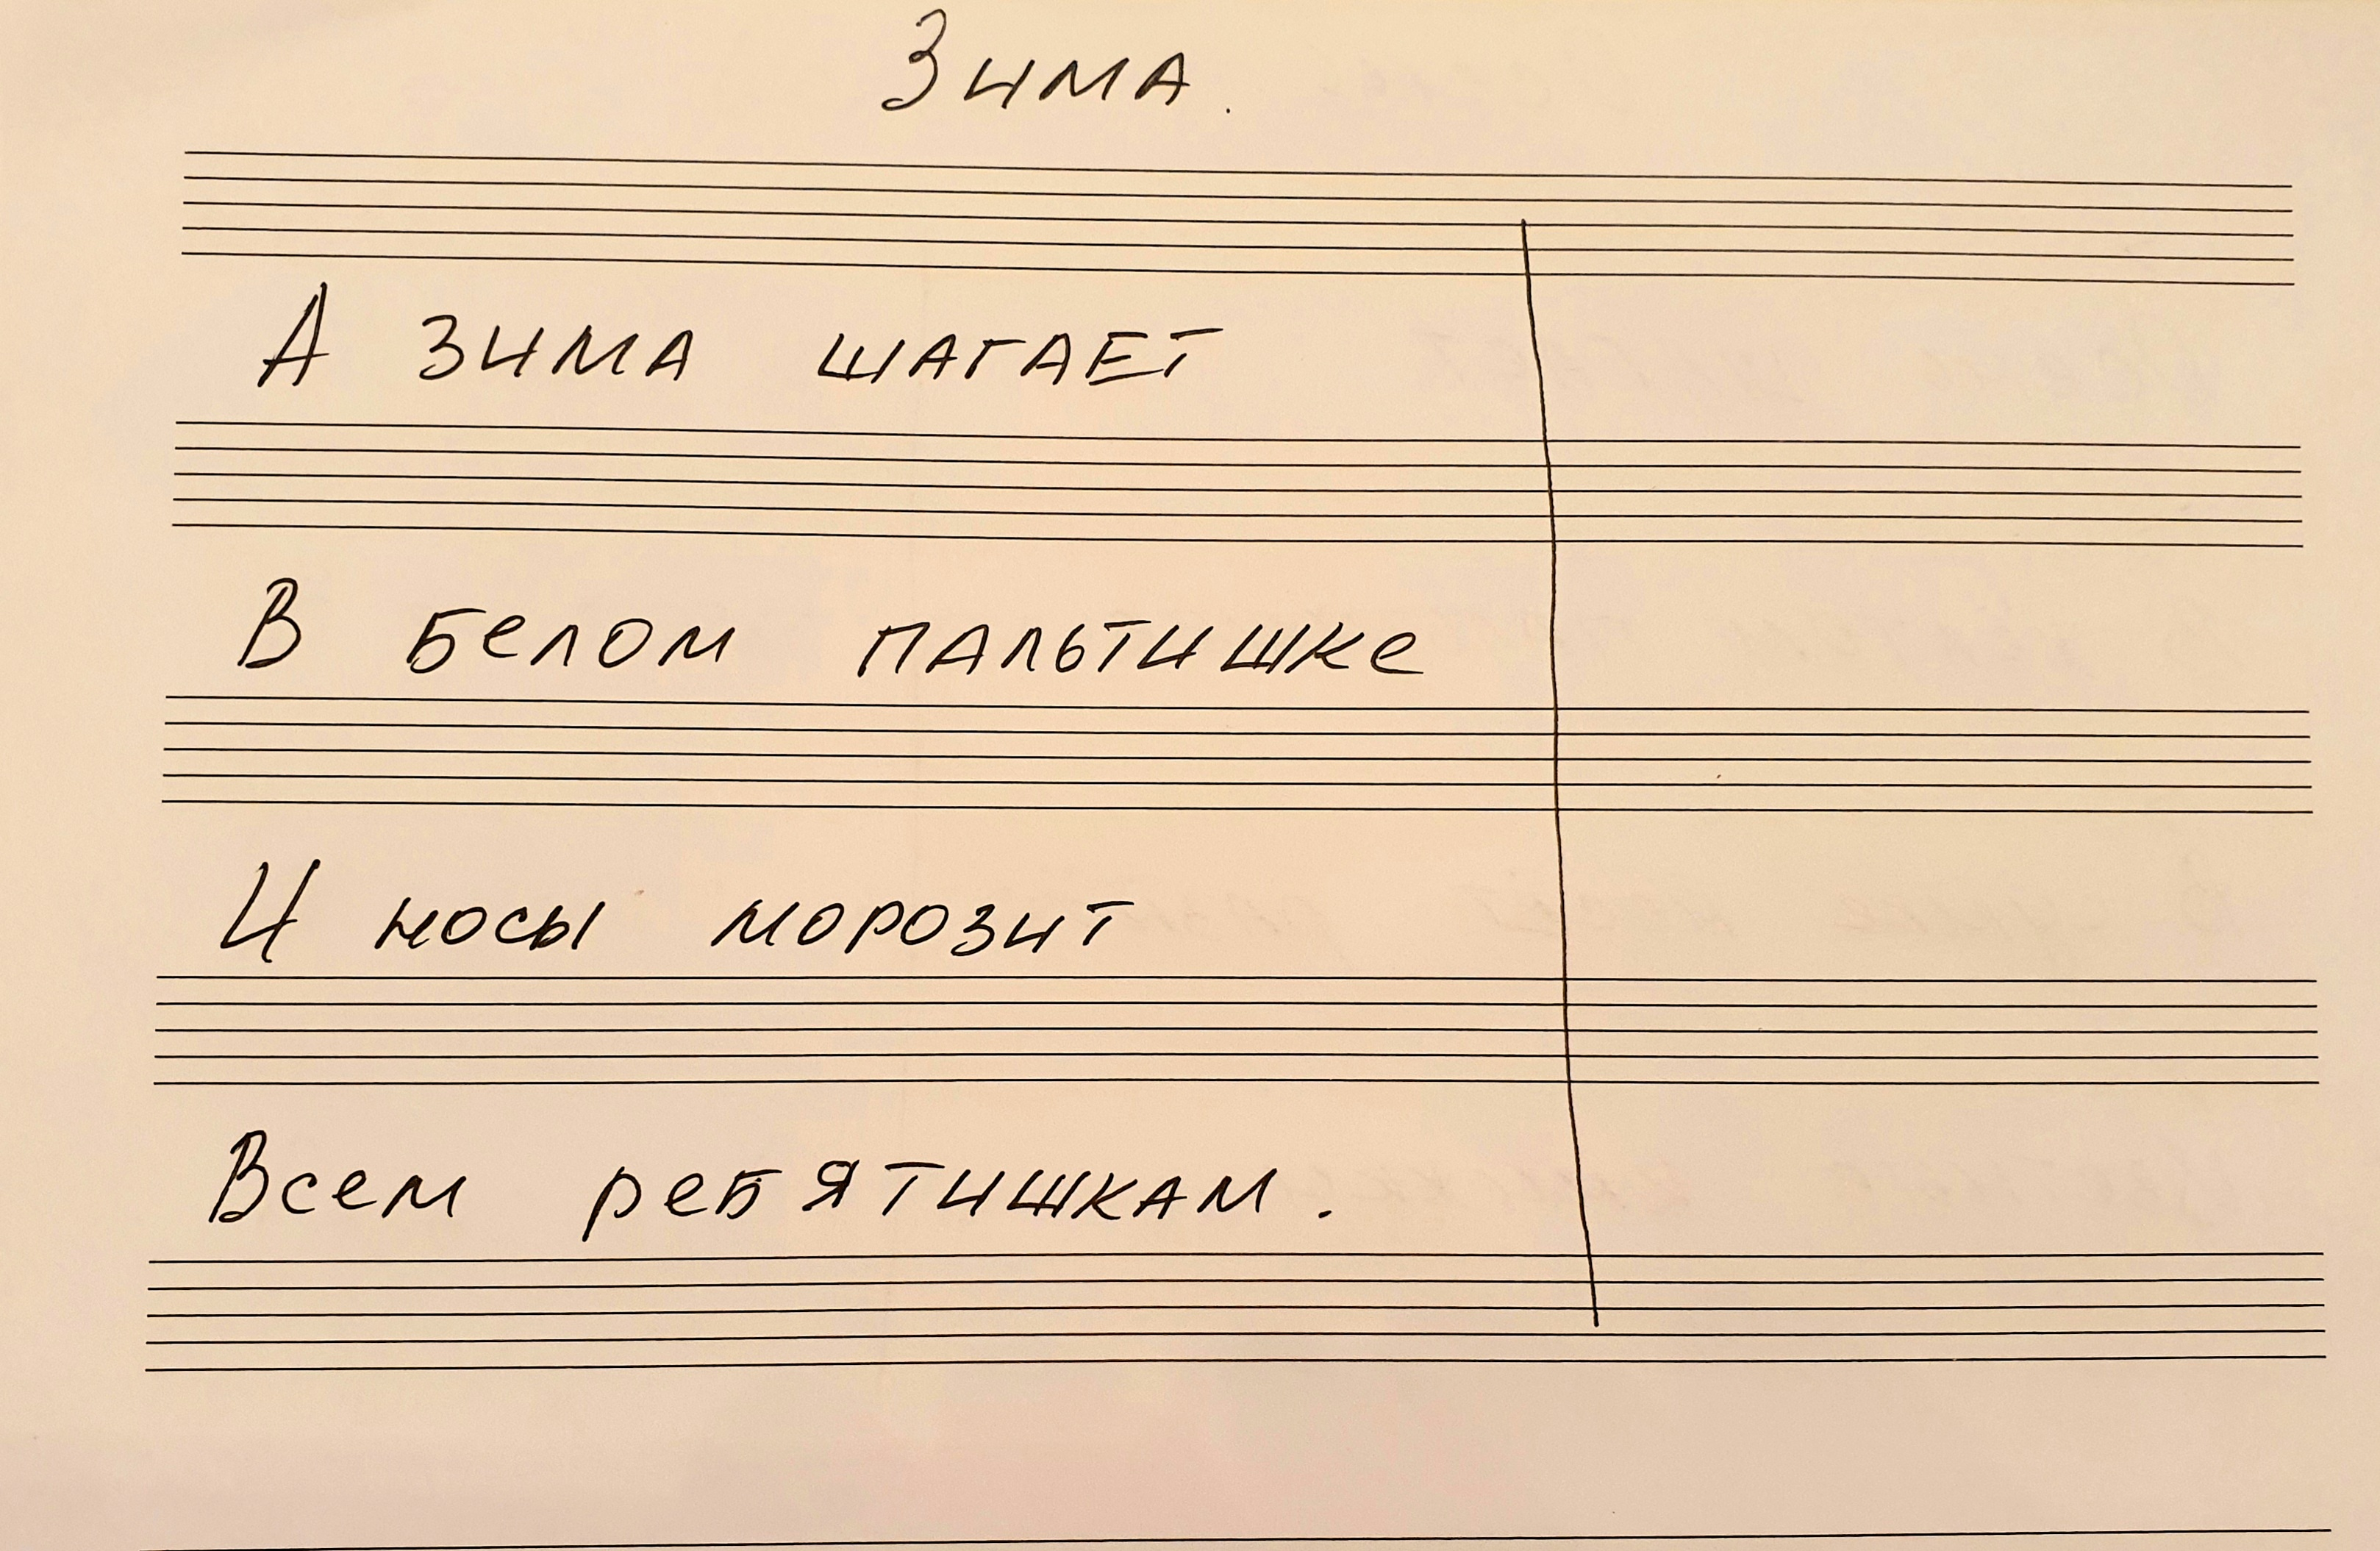 Зима.
А зима шагает
В белом пальтишке
И носы морозит
Всем ребятишкам.